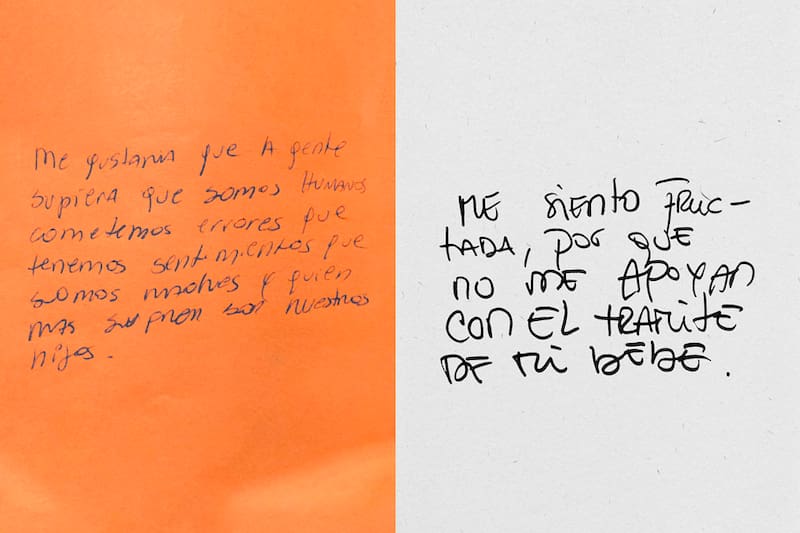 Me gustaria que la gente
supiera que somos HUMANOS
cometemos errores que
tenemos sentimientos que
somos madres y quien
mas sufren son nuestros
hijos.
ME SIENTO FRUC-
TADA, POR QUE
NO ME APOYAN
CON EL TRAMITE
DE MI BEBE.